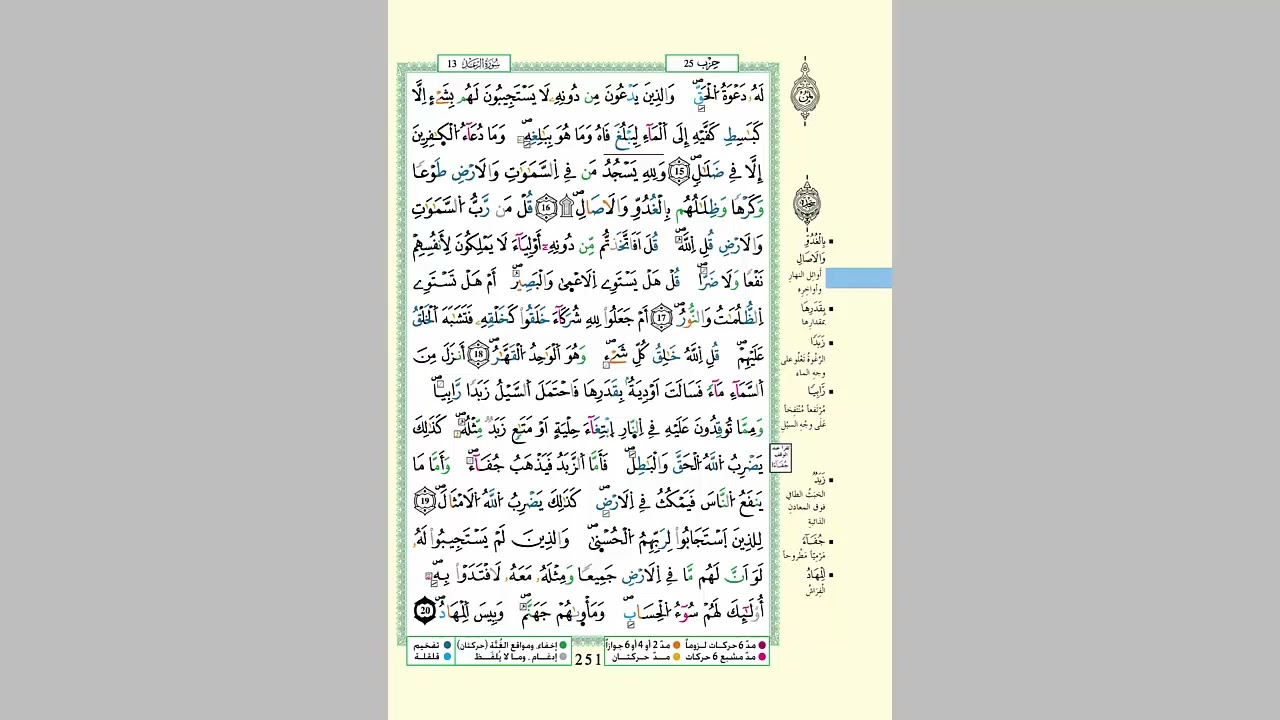 سُورَةُ الرَّعْدِ 13
حِزْب 25
لَهُۥ دَعْوَةُ اُ۬لْحَقِّۖ وَالذِينَ يَدْعُونَ مِن دُونِهِۦ لَا يَسْتَجِيبُونَ لَهُم بِشَےْءٍ اِلَّا
كَبَٰسِطِ كَفَّيْهِ إِلَى اَ۬لْمَآءِ لِيَبْلُغَ فَاهُ وَمَا هُوَ بِبَٰلِغِهِۦۖ وَمَا دُعَآءُ اُ۬لْكٰ۪فِرِينَ
إِلَّا فِے ضَلَٰلٖۖ 15 وَلِلهِ يَسْجُدُ مَن فِے اِ۬لسَّمَٰوَٰتِ وَالَارْضِ طَوْعاٗ
وَكَرْهاٗ وَظِلَٰلُهُم بِالْغُدُوِّ وَالَاصَالِۖ ۩ 16 قُلْ مَن رَّبُّ اُ۬لسَّمَٰوَٰتِ
وَالَارْضِ قُلِ اِ۬للَّهُۖ قُلَ اَفَاتَّخَذتُّم مِّن دُونِهِۦٓ أَوْلِيَآءَ لَا يَمْلِكُونَ لِأَنفُسِهِمْ
نَفْعاٗ وَلَا ضَرّاٗۖ قُلْ هَلْ يَسْتَوِے اِ۬لَاعْمَىٰ وَالْبَصِيرُۖ أَمْ هَلْ تَسْتَوِے
اِ۬لظُّلُمَٰتُ وَالنُّورُۖ 17 أَمْ جَعَلُواْ لِلهِ شُرَكَآءَ خَلَقُواْ كَخَلْقِهِۦ فَتَشَٰبَهَ اَ۬لْخَلْقُ
عَلَيْهِمْۖ قُلِ اِ۬للَّهُ خَٰلِقُ كُلِّ شَےْءٖۖ وَهُوَ اَ۬لْوَٰحِدُ اُ۬لْقَهَّٰرُۖ 18 أَنزَلَ مِنَ
اَ۬لسَّمَآءِ مَآءٗ فَسَالَتَ اَوْدِيَةُۢ بِقَدَرِهَا فَاحْتَمَلَ اَ۬لسَّيْلُ زَبَداٗ رَّابِياٗۖ
وَمِمَّا تُوقِدُونَ عَلَيْهِ فِے اِ۬لنّ۪ارِ اِ۪بْتِغَآءَ حِلْيَةٍ اَوْ مَتَٰعٖ زَبَدٞ مِّثْلُهُۥۖ كَذَٰلِكَ
يَضْرِبُ اُ۬للَّهُ اُ۬لْحَقَّ وَالْبَٰطِلَۖ فَأَمَّا اَ۬لزَّبَدُ فَيَذْهَبُ جُفَآءٗۖ وَأَمَّا مَا
يَنفَعُ اُ۬لنَّاسَ فَيَمْكُثُ فِے اِ۬لَارْضِۖ كَذَٰلِكَ يَضْرِبُ اُ۬للَّهُ اُ۬لَامْثَالَۖ 19
لِلذِينَ اَ۪سْتَجَابُواْ لِرَبِّهِمُ اُ۬لْحُسْنَىٰۖ وَالذِينَ لَمْ يَسْتَجِيبُواْ لَهُۥ
لَوَ اَنَّ لَهُم مَّا فِے اِ۬لَارْضِ جَمِيعاٗ وَمِثْلَهُۥ مَعَهُۥ لَافْتَدَوْاْ بِهِۦٓۖ
أُوْلَٰٓئِكَ لَهُمْ سُوٓءُ اُ۬لْحِسَابِۖ وَمَأْو۪يٰهُمْ جَهَنَّمُۖ وَبِيسَ اَ۬لْمِهَادُۖ 20
بِالْغُدُوِّ
وَالَاصَالِ
أوائل النهار
وأواخره
بِقَدَرِهَا
بمقدارها
زَبَداً
الرّغوة تعلو على
وجه الماء
رَّابِياً
مُرْتَفعاً مُنْتَفِخاً
عَلَى وَجْهِ السَّيْلِ
زَبَدٌ
الخبث الطافي
فوق المعادن
الذائبة
جُفَآءً
مَرْمِيّاً مَطْرُوحاً
اَلْمِهَادُ
الْفِرَاشُ
مدّ 6 حركات لـزوماً
مدّ 2 أو 4 أو 6 جوازاً
إخفاء، ومواقع الغُنَّة (حركتان)
تفخيم
مدّ مشبع 6 حركات
مـدّ حركتـان
إدغـام ، ومـا لا يُلفـظ
قلقلة
251